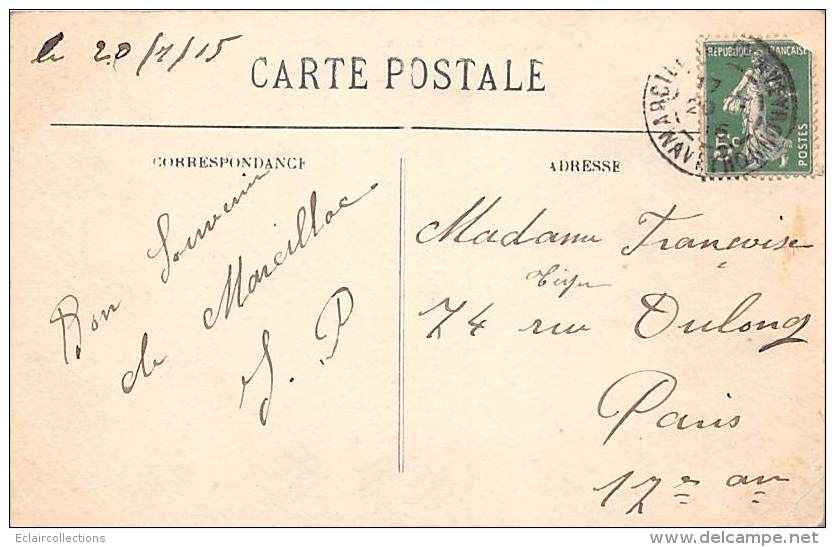 le 20/7/15
CARTE POSTALE
RÉPUBLIQUE FRANÇAISE
POSTES
CORRESPONDANCE
ADRESSE
Bon Souvenir
de Marcillac
J. P
Madame Françoise
74 rue Dulong
Paris
17e arr
Eclaircollections
www.delcampe.net